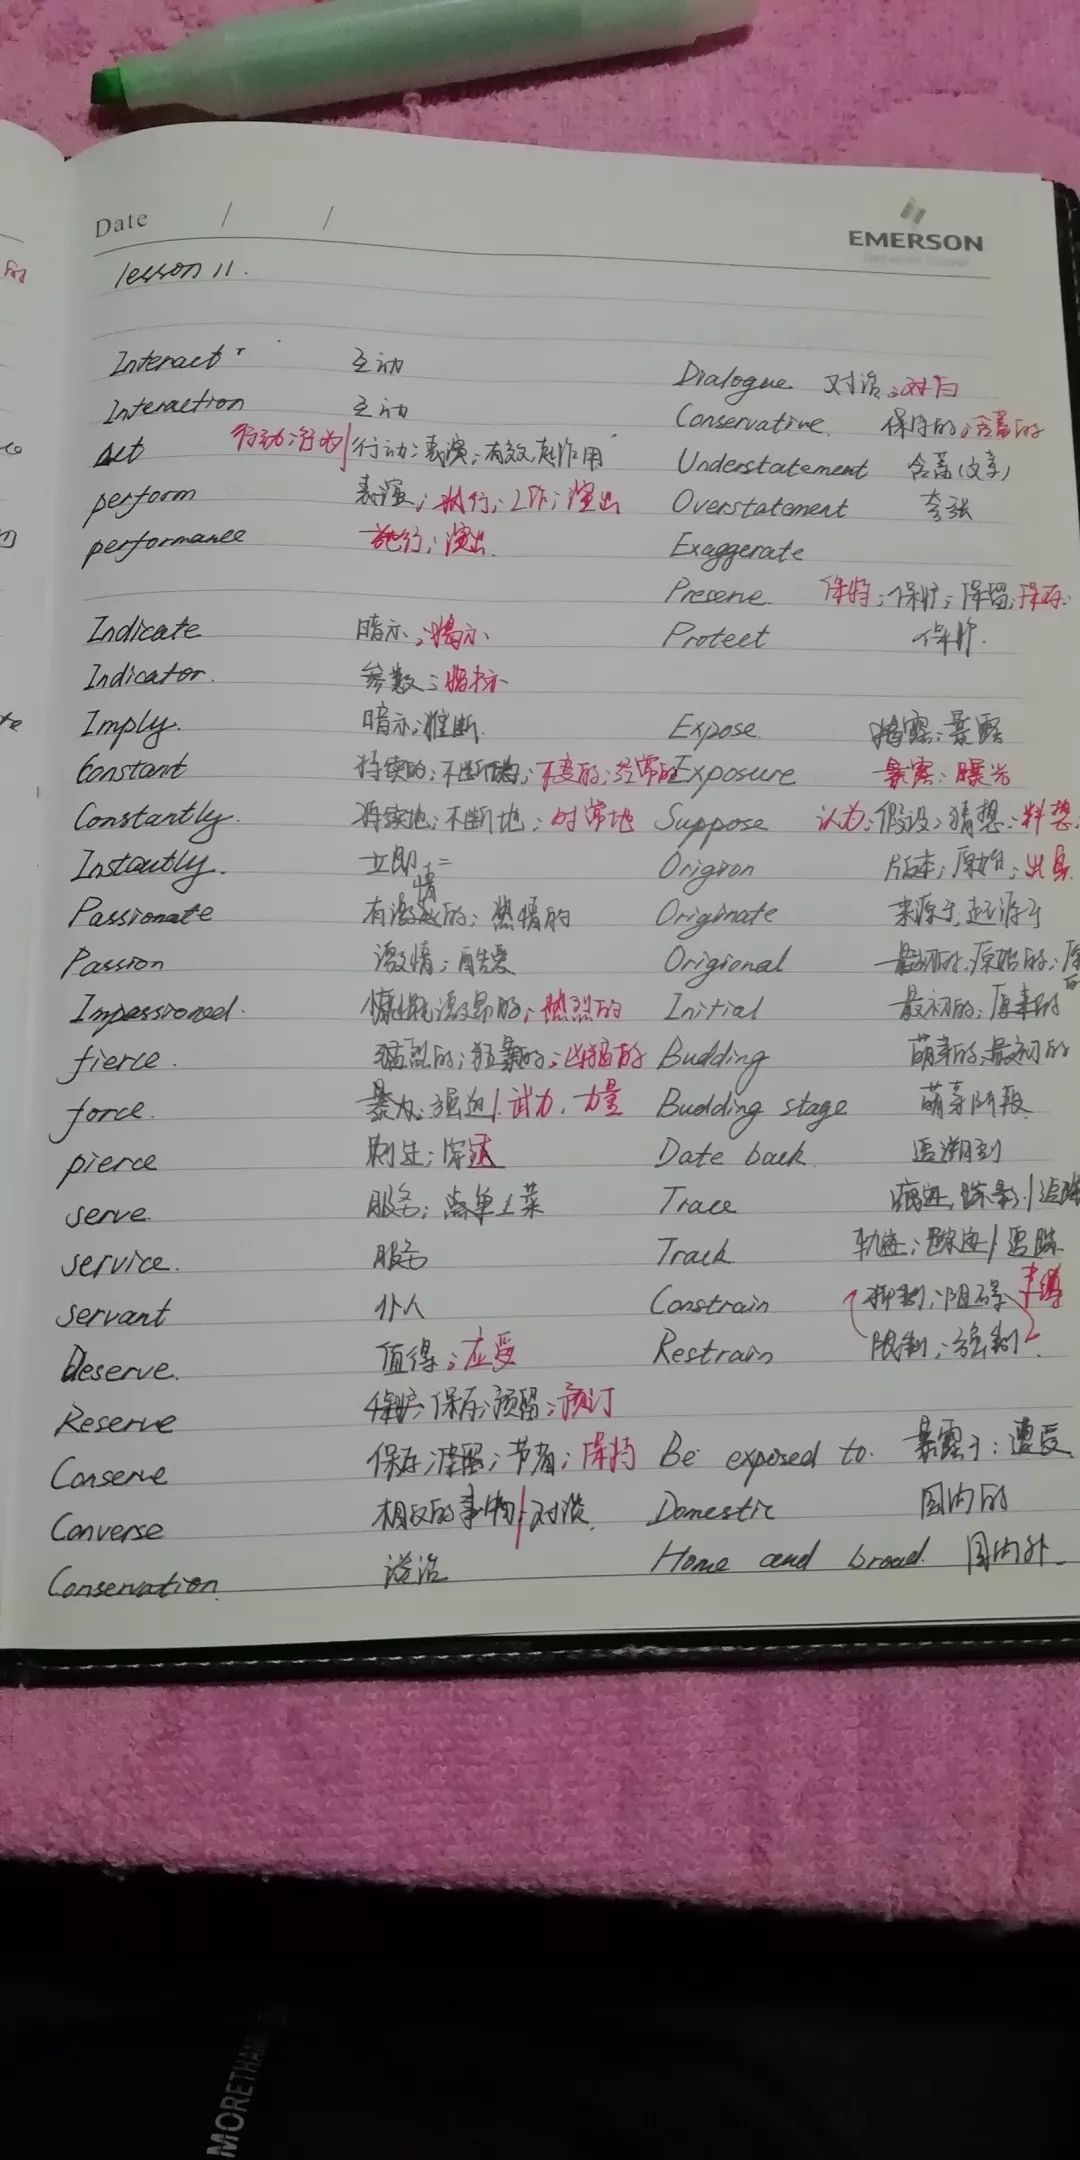 Date / /
EMERSON
lesson 11.
Interact 互动
Interaction 互动
Act 行动;行为/行动;表演;有效,起作用
perform 表演;执行;工作;演出
performance 施行;演出.
Indicate 暗示;揭示
Indicator. 参数;指标
Imply. 暗示;推断.
Constant 持续的;不断的;不变的;经常的
Constantly. 持续地;不断地;时常地
Instantly. 立即
Passionate 有激情的;热情的
Passion 激情;酷爱
Impassioned. 慷慨激昂的;热烈的
fierce. 猛烈的;狂暴的;凶猛的
force. 暴力;强迫/武力,力量
pierce 刺过;穿透
serve. 服务;点单上菜
service. 服务
servant 仆人
Deserve. 值得;应受
Reserve 保存;预留;预订
Conserve 保存;保留;节省;保持
Converse 相反的事物/对谈.
Conservation. 谈话
Dialogue. 对话;对白
Conservative. 保守的;含蓄的
Understatement 含蓄(文章)
Overstatement 夸张
Exaggerate
Preserve. 保持;保护;保留;保存.
Protect 保护.
Expose. 揭露;暴露
Exposure 暴露;曝光
Suppose 认为;假设;猜想;料想.
Origion 版本;原始;出身
Originate 来源于,起源于
Origional 最初的,原始的;
Initial 最初的;原来的
Budding 萌芽的;最初的
Budding stage 萌芽阶段
Date back. 追溯到
Trace 痕迹,踪影/追踪
Track 轨迹;踪迹/追踪
Constrain 抑制;阻碍 束缚
Restrain 限制;强制.
Be exposed to. 暴露于;遭受
Domestic 国内的
Home and broad. 国内外
MORETHAN